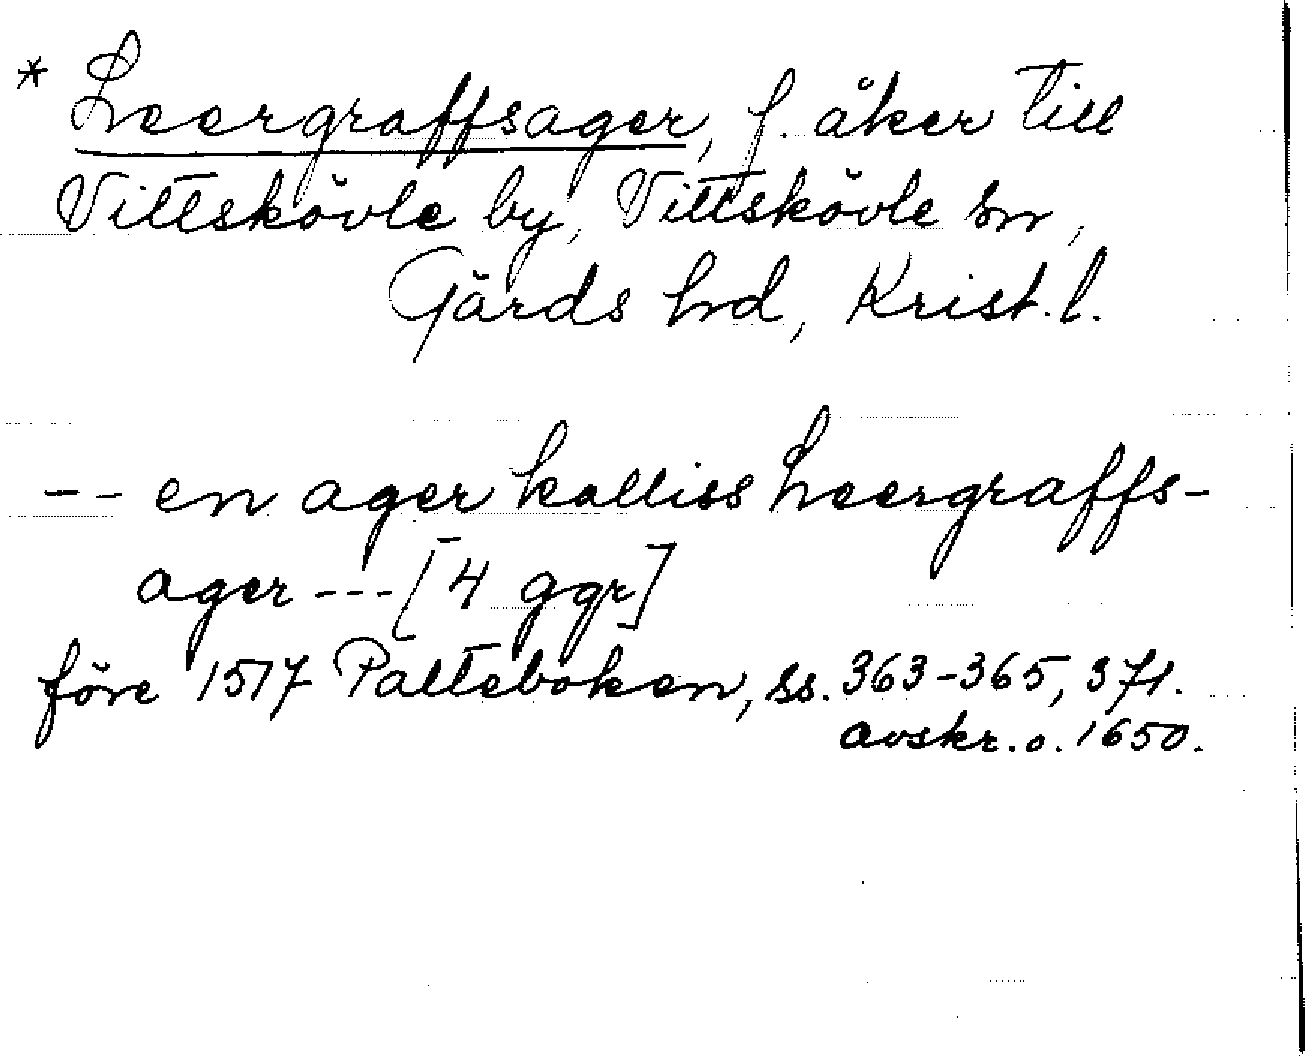 * Leergraffsager, f. åker till
Vittskövle by, Vittskövle sn,
Gärds hd, Krist. l.
-- en ager kalliss Leergraffs-
ager --- [4 ggr]
före 1517 Palteboken, ss. 363-365, 371.
avskr. o. 1650.